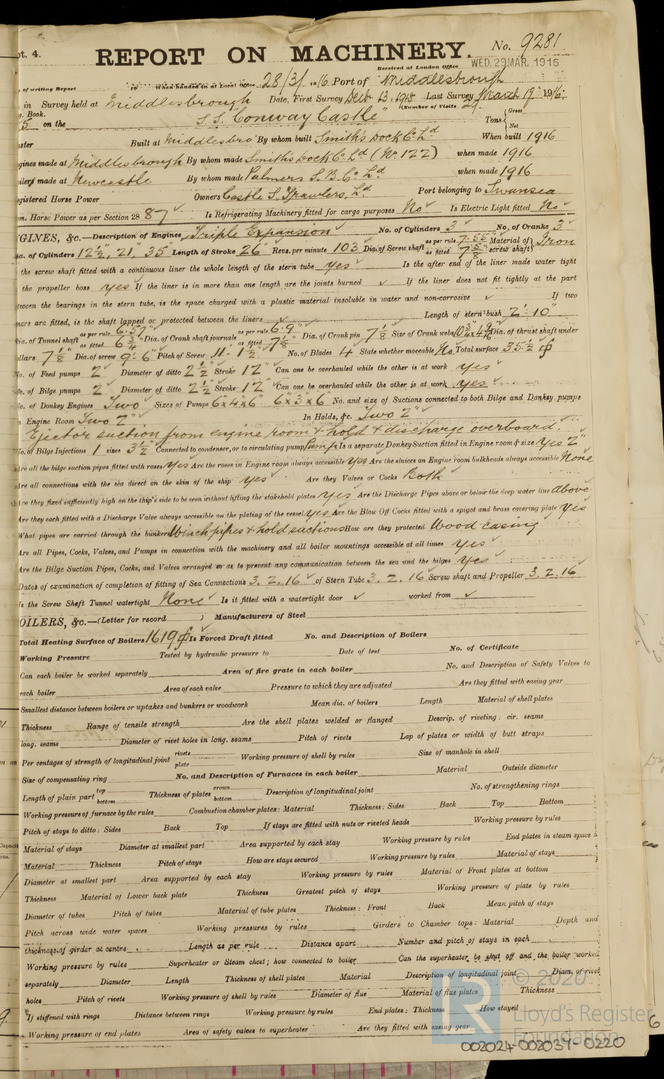 pt. 4.
REPORT ON MACHINERY. No. 9281
Received at London Office WED. 29 MAR. 1916
of writing Report 19 When handed in at Local Office 28/3/1916 Port of Middlesbrough
in Survey held at Middlesbrough Date, First Survey Dec 13. 1915 Last Survey March 19: 1916
Book. (Number of Visits
5 on the S.S. "Conway Castle" Tons Gross Net
Built at Middlesbro' By whom built Smith's Dock Co. Ld When built 1916
Engines made at Middlesbrough By whom made Smith's Dock Co. Ld (No 122) when made 1916
Boilers made at Newcastle By whom made Palmers S. B. Co. Ld when made 1916
Registered Horse Power Owners Castle S. Trawlers, Ld Port belonging to Swansea
Nom. Horse Power as per Section 28 87 Is Refrigerating Machinery fitted for cargo purposes No Is Electric Light fitted No
ENGINES, &c.—Description of Engines Triple Expansion No. of Cylinders 3 No. of Cranks 3
Dia. of Cylinders 12½", 21", 35" Length of Stroke 26" Revs. per minute 103 Dia. of Screw shaft as per rule 7.55" as fitted Material of screw shaft Iron
the screw shaft fitted with a continuous liner the whole length of the stern tube yes Is the after end of the liner made water tight
the propeller boss yes If the liner is in more than one length are the joints burned If the liner does not fit tightly at the part
between the bearings in the stern tube, is the space charged with a plastic material insoluble in water and non-corrosive If two
liners are fitted, is the shaft lapped or protected between the liners Length of stern bush 2'-10"
Dia. of Tunnel shaft as per rule 6.57" as fitted 6¾" Dia. of Crank shaft journals as per rule 6.9" as fitted 7⅛" Dia. of Crank pin 7⅛" Size of Crank webs Dia. of thrust shaft under
collars 7⅛" Dia. of screw 9'-6" Pitch of Screw 11'-1½" No. of Blades 4 State whether moveable No Total surface 35½ sq ft
No. of Feed pumps 2 Diameter of ditto 2½" Stroke 12" Can one be overhauled while the other is at work yes
No. of Bilge pumps 2 Diameter of ditto 2½" Stroke 12" Can one be overhauled while the other is at work yes
No. of Donkey Engines Two Sizes of Pumps 6"x4"x6" 6"x3"x6" No. and size of Suctions connected to both Bilge and Donkey pumps
In Engine Room Two 2" In Holds, &c. Two 2"
Ejector suction from engine room & hold & discharge overboard.
No. of Bilge Injections 1 sizes 3½" Connected to condenser, or to circulating pump Pump Is a separate Donkey Suction fitted in Engine room & size Yes 2"
Are all the bilge suction pipes fitted with roses Yes Are the roses in Engine room always accessible Yes Are the sluices on Engine room bulkheads always accessible None
Are all connections with the sea direct on the skin of the ship yes Are they Valves or Cocks Both
Are they fixed sufficiently high on the ship's side to be seen without lifting the stokehold plates Yes Are the Discharge Pipes above or below the deep water line Above
Are they each fitted with a Discharge Valve always accessible on the plating of the vessel yes Are the Blow Off Cocks fitted with a spigot and brass covering plate yes
What pipes are carried through the bunkers Winch pipes & hold suctions How are they protected Wood casing
Are all Pipes, Cocks, Valves, and Pumps in connection with the machinery and all boiler mountings accessible at all times yes
Are the Bilge Suction Pipes, Cocks, and Valves arranged so as to prevent any communication between the sea and the bilges yes
Dates of examination of completion of fitting of Sea Connections 3. 2. 16 of Stern Tube 3. 2. 16 Screw shaft and Propeller 3. 2. 16
Is the Screw Shaft Tunnel watertight None Is it fitted with a watertight door worked from
BOILERS, &c.—(Letter for record ) Manufacturers of Steel
Total Heating Surface of Boilers 1619 sq ft Is Forced Draft fitted No. and Description of Boilers
Working Pressure Tested by hydraulic pressure to Date of test No. of Certificate
Can each boiler be worked separately Area of fire grate in each boiler No. and Description of Safety Valves to
each boiler Area of each valve Pressure to which they are adjusted Are they fitted with easing gear
Smallest distance between boilers or uptakes and bunkers or woodwork Mean dia. of boilers Length Material of shell plates
Thickness Range of tensile strength Are the shell plates welded or flanged Descrip. of riveting: cir. seams
long. seams Diameter of rivet holes in long. seams Pitch of rivets Lap of plates or width of butt straps
Per centages of strength of longitudinal joint rivets plate Working pressure of shell by rules Size of manhole in shell
Size of compensating ring No. and Description of Furnaces in each boiler Material Outside diameter
Length of plain part top bottom Thickness of plates crown bottom Description of longitudinal joint No. of strengthening rings
Working pressure of furnace by the rules Combustion chamber plates: Material Thickness: Sides Back Top Bottom
Pitch of stays to ditto: Sides Back Top If stays are fitted with nuts or riveted heads Working pressure by rules
Material of stays Diameter at smallest part Area supported by each stay Working pressure by rules End plates in steam space
Material Thickness Pitch of stays How are stays secured Working pressure by rules Material of stays
Diameter at smallest part Area supported by each stay Working pressure by rules Material of Front plates at bottom
Thickness Material of Lower back plate Thickness Greatest pitch of stays Working pressure of plate by rules
Diameter of tubes Pitch of tubes Material of tube plates Thickness: Front Back Mean pitch of stays
Pitch across wide water spaces Working pressures by rules Girders to Chamber tops: Material Depth and
thickness of girder at centre Length as per rule Distance apart Number and pitch of stays in each
Working pressure by rules Superheater or Steam chest; how connected to boiler Can the superheater be shut off and the boiler worked
separately Diameter Length Thickness of shell plates Material Description of longitudinal joint Diam. of rivet
holes Pitch of rivets Working pressure of shell by rules Diameter of flue Material of flue plates Thickness
If stiffened with rings Distance between rings Working pressure by rules End plates: Thickness How stayed
Working pressure of end plates Area of safety valves to superheater Are they fitted with easing gear
© 2020
Lloyd's Register
Foundation
002024-002037-0220